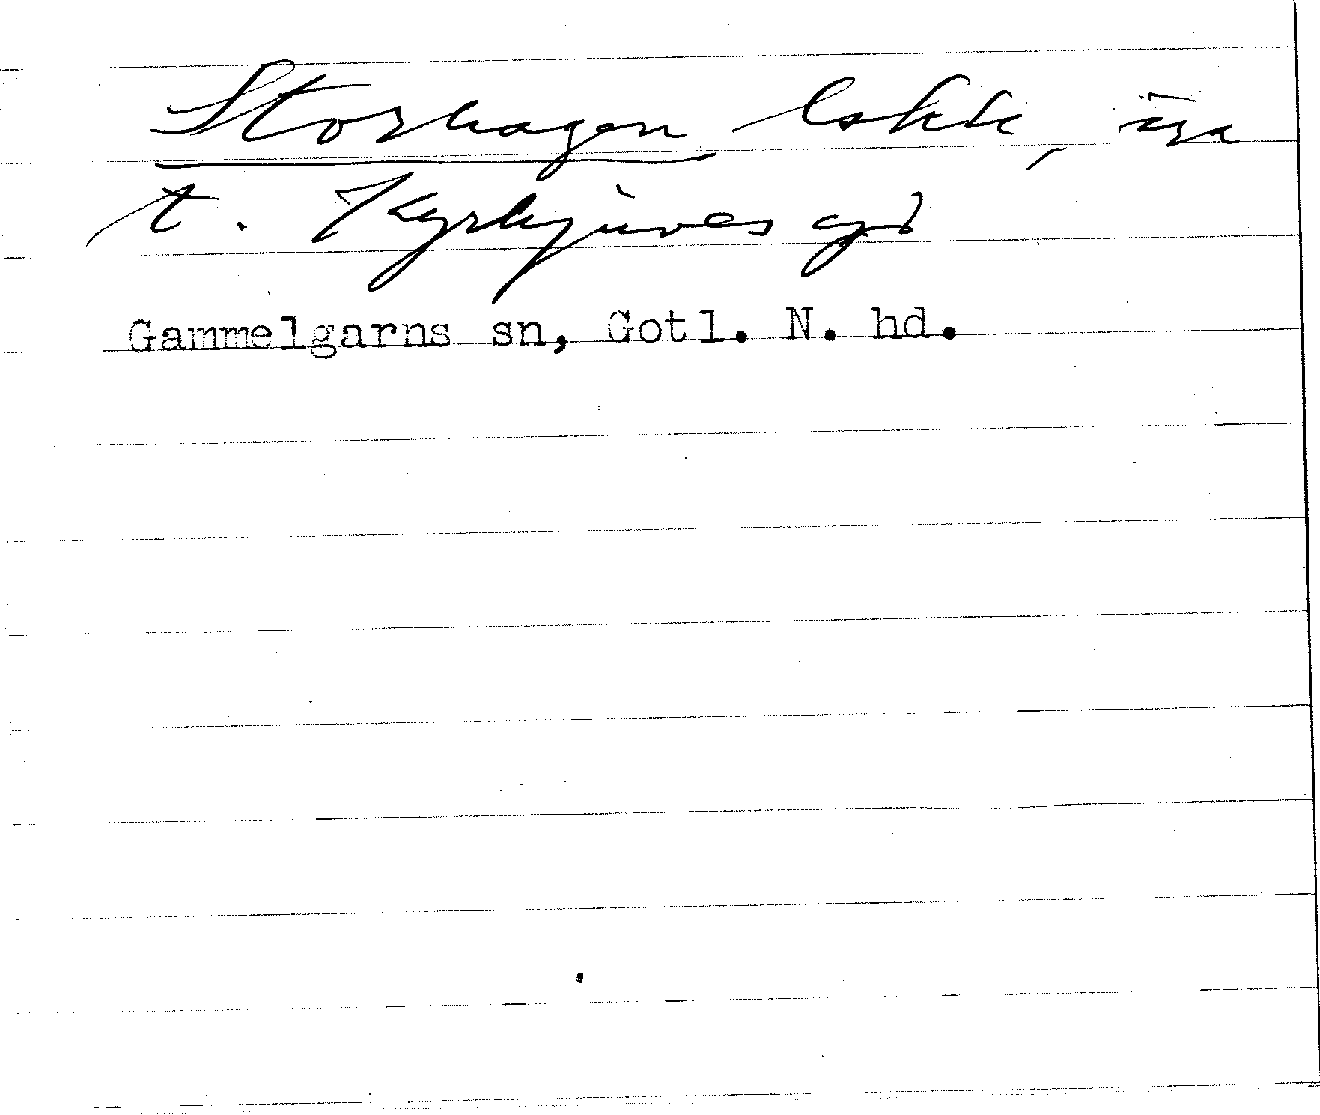 Storhagen , äga
t. Kyrkjuves gd
Gammelgarns sn, Gotl. N. hd.